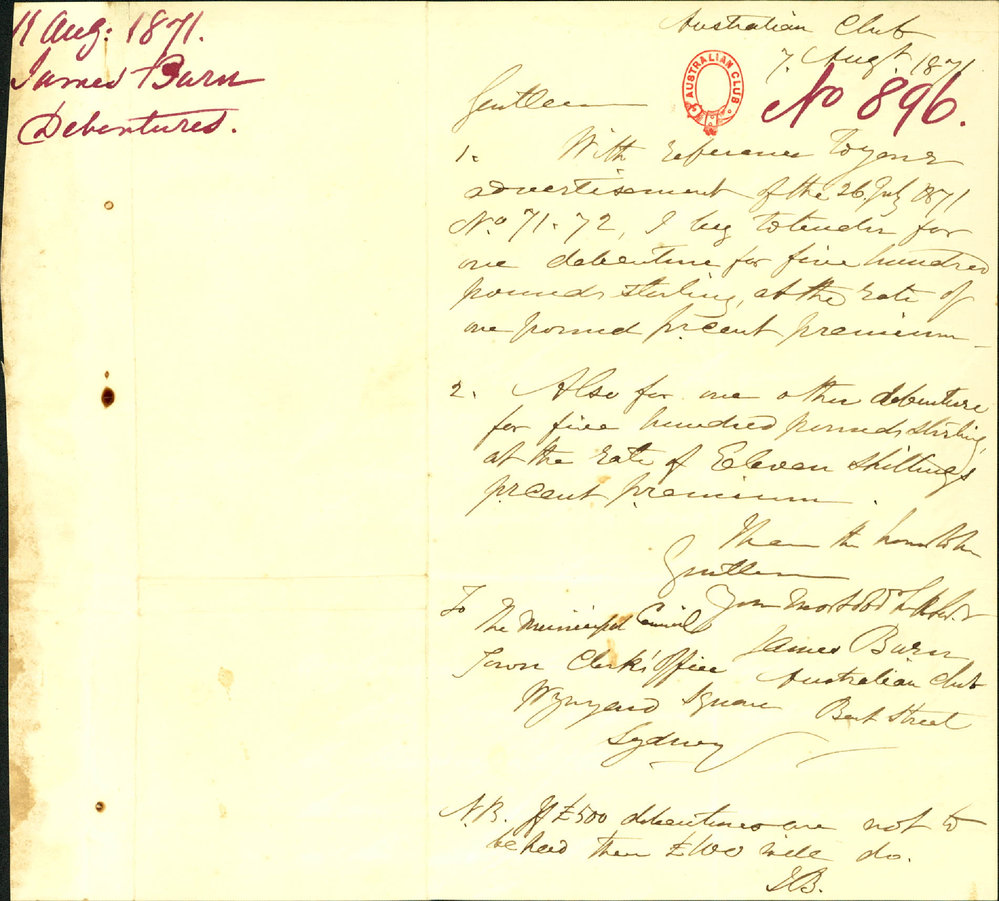 11 Aug: 1871.
James Burn
Debentures.
Australian Club
7 Augt. 1871
AUSTRALIAN CLUB
No 896.
Gentlemen
1. With reference to your
advertisement of the 26 July 1871
No. 71.72, I beg to tender for
one debenture for five hundred
pounds sterling, at the rate of
one pound pr cent premium
2. Also for one other debenture
for five hundred pounds sterling
at the rate of Eleven Shillings
pr cent premium.
I have the honor to be
Gentlemen
Your most obdt
James Burn
Australian Club
Bent Street
To
The Municipal Council
Town Clerk's Office
Wynyard Square
Sydney
N.B. If £500 debentures are not to
be had then £100 will do.
JB.